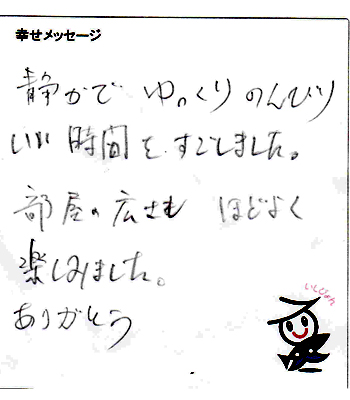 幸せメッセージ
静かで ゆっくり のんびり
いい 時間を すごしました。
部屋の 広さも ほどよく
楽しみました。
ありがとう